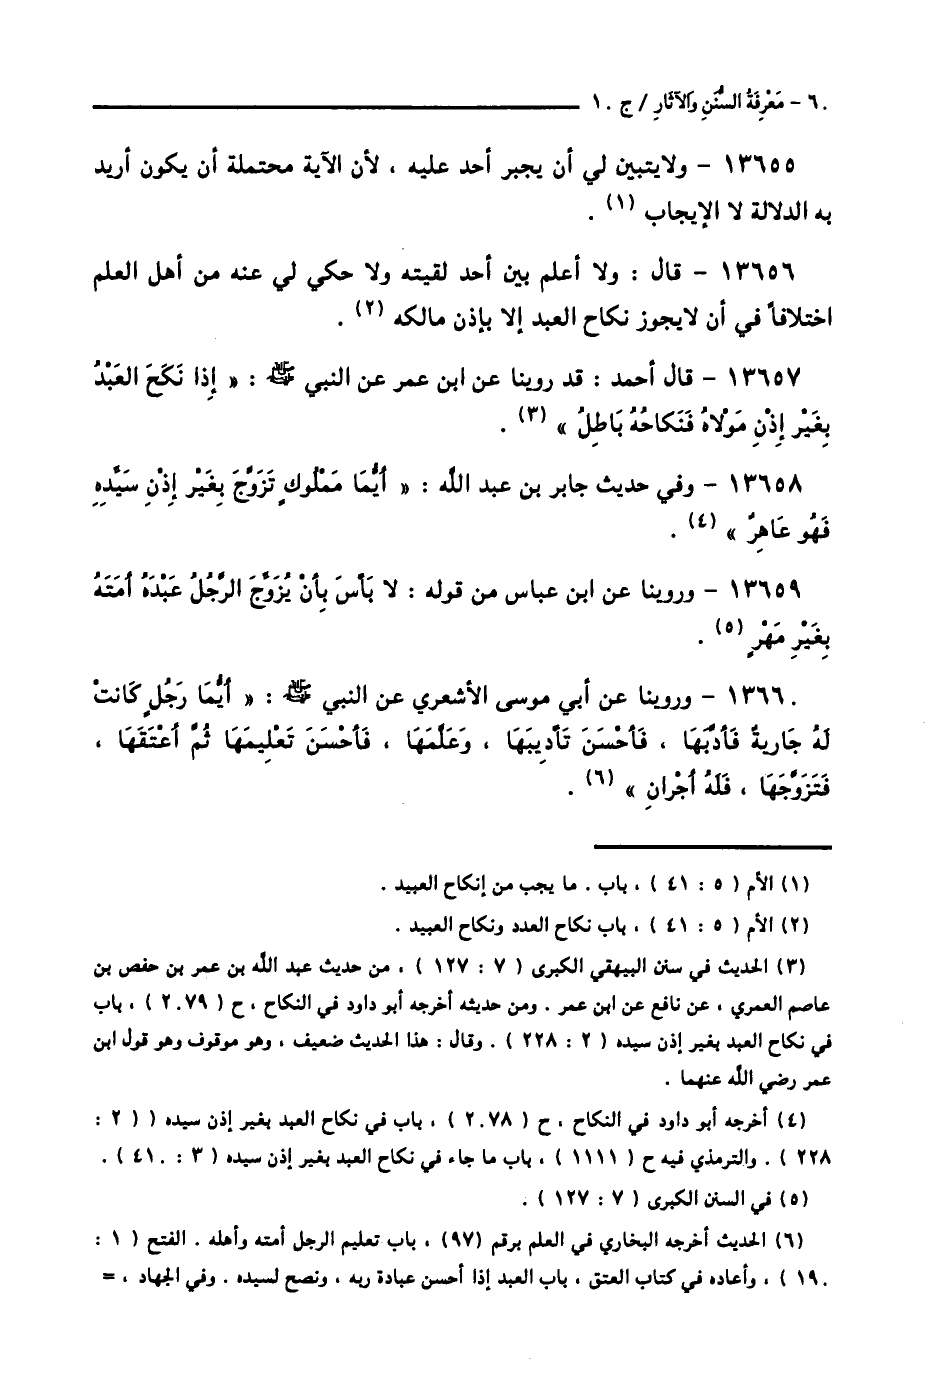 ٦٠ - مَعْرِفَةُ السُّنَنِ وَالآثَارِ / ج ١٠
١٣٦٥٥ - ولايتبين لي أن يجبر أحد عليه ، لأن الآية محتملة أن يكون أريد
به الدلالة لا الإيجاب (١) .
١٣٦٥٦ - قال : ولا أعلم بين أحد لقيته ولا حكي لي عنه من أهل العلم
اختلافاً في أن لايجوز نكاح العبد إلا بإذن مالكه (٢) .
١٣٦٥٧ - قال أحمد : قد روينا عن ابن عمر عن النبي ﷺ : « إِذا نَكَحَ العَبْدُ
بِغَيْرِ إِذْنِ مَوْلاهُ فَنَكاحُهُ بَاطِلُ » (٣) .
١٣٦٥٨ - وفي حديث جابر بن عبد الله : « أَيُّمَا مَمْلُوكٍ تَزَوَّجَ بِغَيْرِ إِذْنِ سَيِّدِهِ
فَهُو عَاهِرٌ » (٤) .
١٣٦٥٩ - وروينا عن ابن عباس من قوله : لا بَأْسَ بِأَنْ يُزَوِّجَ الرَّجُلُ عَبْدَهُ أمَتَهُ
بِغَيْرِ مَهْرٍ (٥) .
١٣٦٦٠ - وروينا عن أبي موسى الأشعري عن النبي ﷺ : « أَيُّمَا رَجُلٍ كَانَتْ
لَهُ جَارِيةٌ فَأَدَّبَهَا ، فَأَحْسَنَ تَأدِيبَهَا ، وَعَلَّمَهَا ، فَأَحْسَنَ تَعْلِيمَهَا ثُمَّ أعْتَقَهَا ،
فَتَزَوَّجَهَا ، فَلَهُ أجْرانِ » (٦) .
(١) الأم ( ٥ : ٤١ ) ، باب . ما يجب من إنكاح العبيد .
(٢) الأم ( ٥ : ٤١ ) ، باب نكاح العدد ونكاح العبيد .
(٣) الحديث في سنن البيهقي الكبرى ( ٧ : ١٢٧ ) ، من حديث عبد الله بن عمر بن حفص بن
عاصم العمري ، عن نافع عن ابن عمر . ومن حديثه أخرجه أبو داود في النكاح ، ح ( ٢٠٧٩ ) ، باب
في نكاح العبد بغير إذن سيده ( ٢ : ٢٢٨ ) . وقال : هذا الحديث ضعيف ، وهو موقوف وهو قول ابن
عمر رضي الله عنهما .
(٤) أخرجه أبو داود في النكاح ، ح ( ٢٠٧٨ ) ، باب في نكاح العبد بغير إذن سيده ( ( ٢ :
٢٢٨ ) . والترمذي فيه ح ( ١١١١ ) ، باب ما جاء في نكاح العبد بغير إذن سيده ( ٣ : ٤١٠ ) .
(٥) في السنن الكبرى ( ٧ : ١٢٧ ) .
(٦) الحديث أخرجه البخاري في العلم برقم (٩٧) ، باب تعليم الرجل أمته وأهله . الفتح ( ١ :
١٩٠ ) ، وأعاده في كتاب العتق ، باب العبد إذا أحسن عبادة ربه ، ونصح لسيده . وفي الجهاد ، =